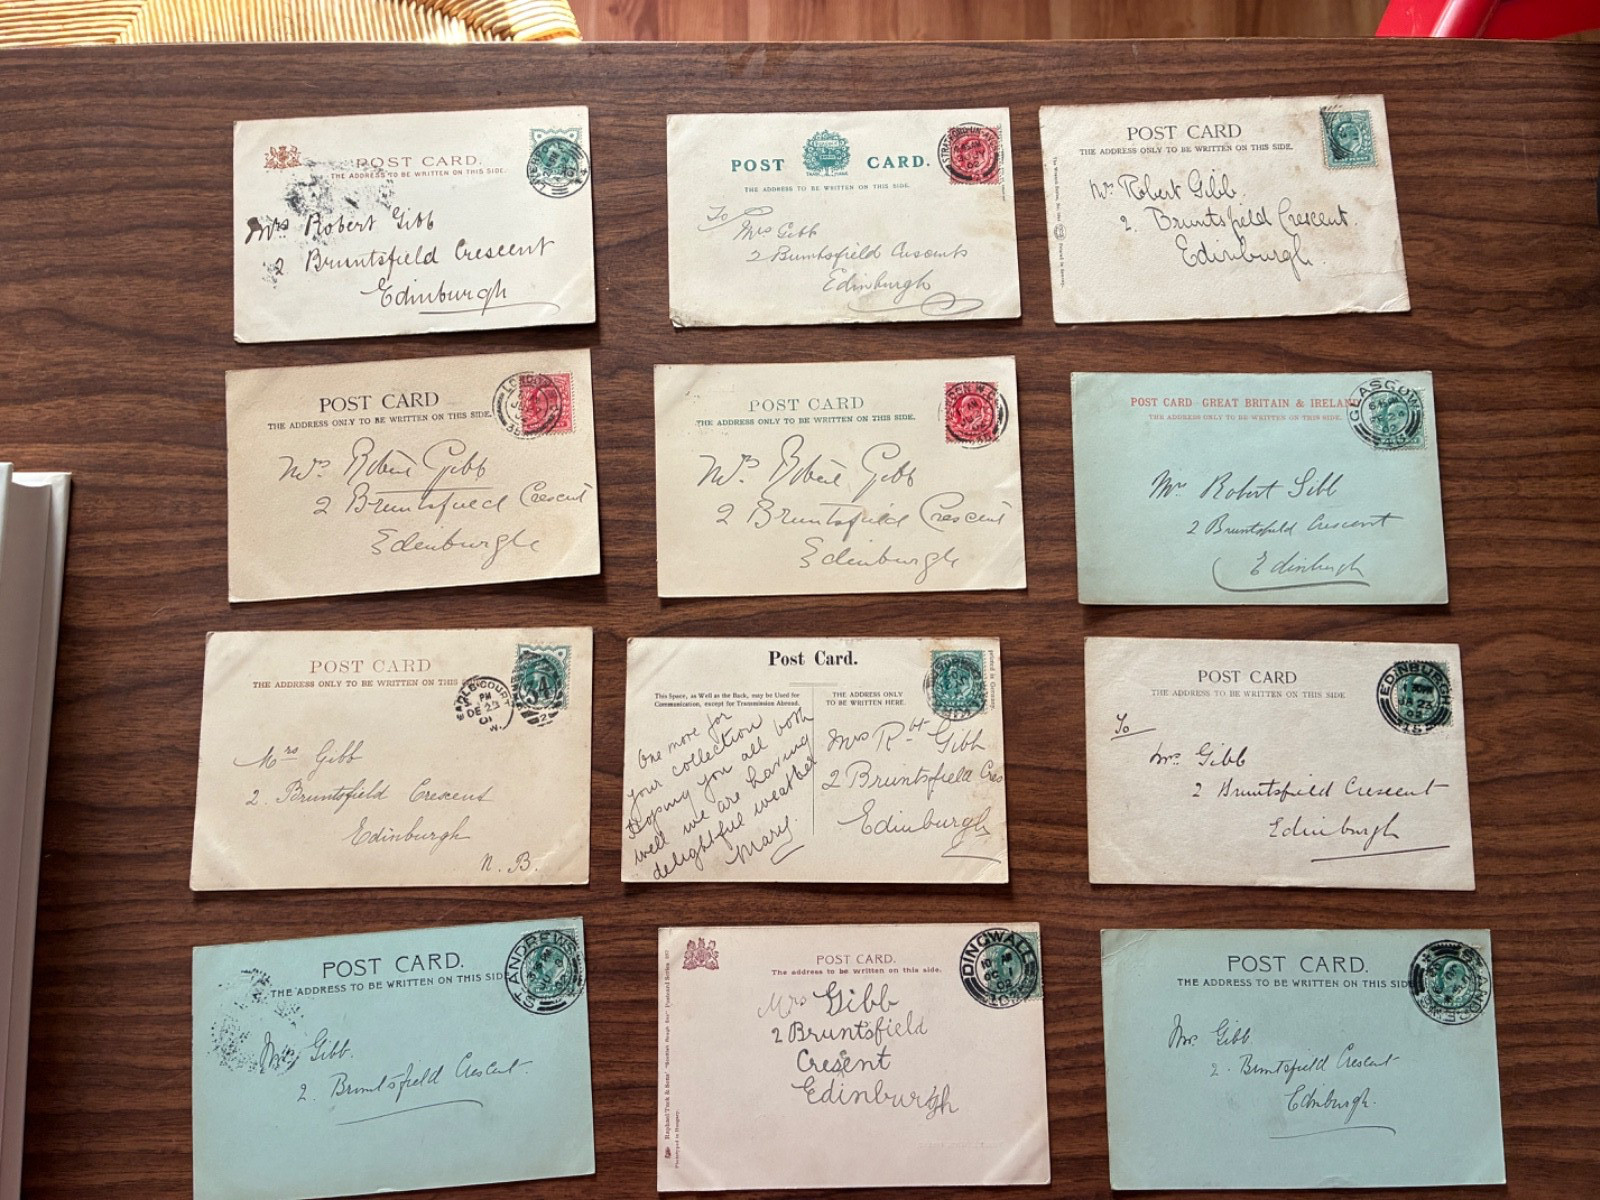 POST CARD.
THE ADDRESS TO BE WRITTEN ON THIS SIDE.
Mrs Robert Gibb
2 Bruntsfield Crescent
Edinburgh
POST CARD.
THE ADDRESS TO BE WRITTEN ON THIS SIDE.
STRATFORD-ON-AVON
To
Mrs Gibb
2 Bruntsfield Crescent
Edinburgh
POST CARD
THE ADDRESS ONLY TO BE WRITTEN ON THIS SIDE.
Mrs Robert Gibb.
2. Bruntsfield Crescent.
Edinburgh.
POST CARD
THE ADDRESS ONLY TO BE WRITTEN ON THIS SIDE.
LONDON
Mrs Robert Gibb
2 Bruntsfield Crescent
Edinburgh
POST CARD
THE ADDRESS ONLY TO BE WRITTEN ON THIS SIDE.
Mrs Robert Gibb
2 Bruntsfield Crescent
Edinburgh
POST CARD GREAT BRITAIN & IRELAND
THE ADDRESS ONLY TO BE WRITTEN ON THIS SIDE.
GLASGOW
Mrs Robert Gibb
2 Bruntsfield Crescent
Edinburgh
POST CARD
THE ADDRESS ONLY TO BE WRITTEN ON THIS
EARLS COURT
PM
DE 23
01
W.
Mrs Gibb
2. Bruntsfield Crescent
Edinburgh
N. B.
Post Card.
This Space, as Well as the Back, may be Used for
Communication, except for Transmission Abroad.
THE ADDRESS ONLY
TO BE WRITTEN HERE.
One more for
your collection
Hoping you all both
well we are having
delightful weather
Mary.
Mrs Rbt Gibb
2 Bruntsfield Cres
Edinburgh
POST CARD
THE ADDRESS ONLY TO BE WRITTEN ON THIS SIDE
EDINBURGH
To
Mrs Gibb
2 Bruntsfield Crescent
Edinburgh
POST CARD.
THE ADDRESS TO BE WRITTEN ON THIS SIDE
ST ANDREWS
Mrs Gibb.
2. Bruntsfield Crescent.
POST CARD.
The address to be written on this side.
DINGWALL
OC 1
02
Mrs Gibb
2 Bruntsfield
Cresent
Edinburgh
POST CARD.
THE ADDRESS TO BE WRITTEN ON THIS SIDE
ST ANDREWS
Mrs. Gibb
2. Bruntsfield Crescent
Edinburgh.